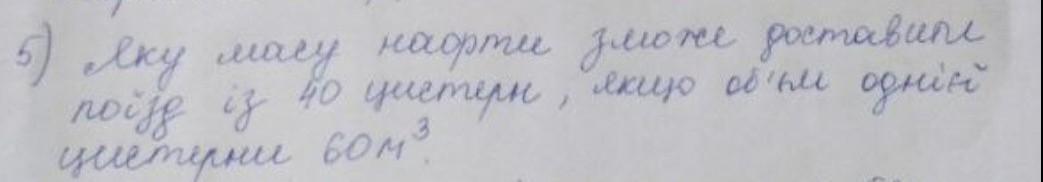 5) Яку масу нафти зможе доставити
поїзд із 40 цистерн, якщо об'єм однієї
цистерни 60м³.